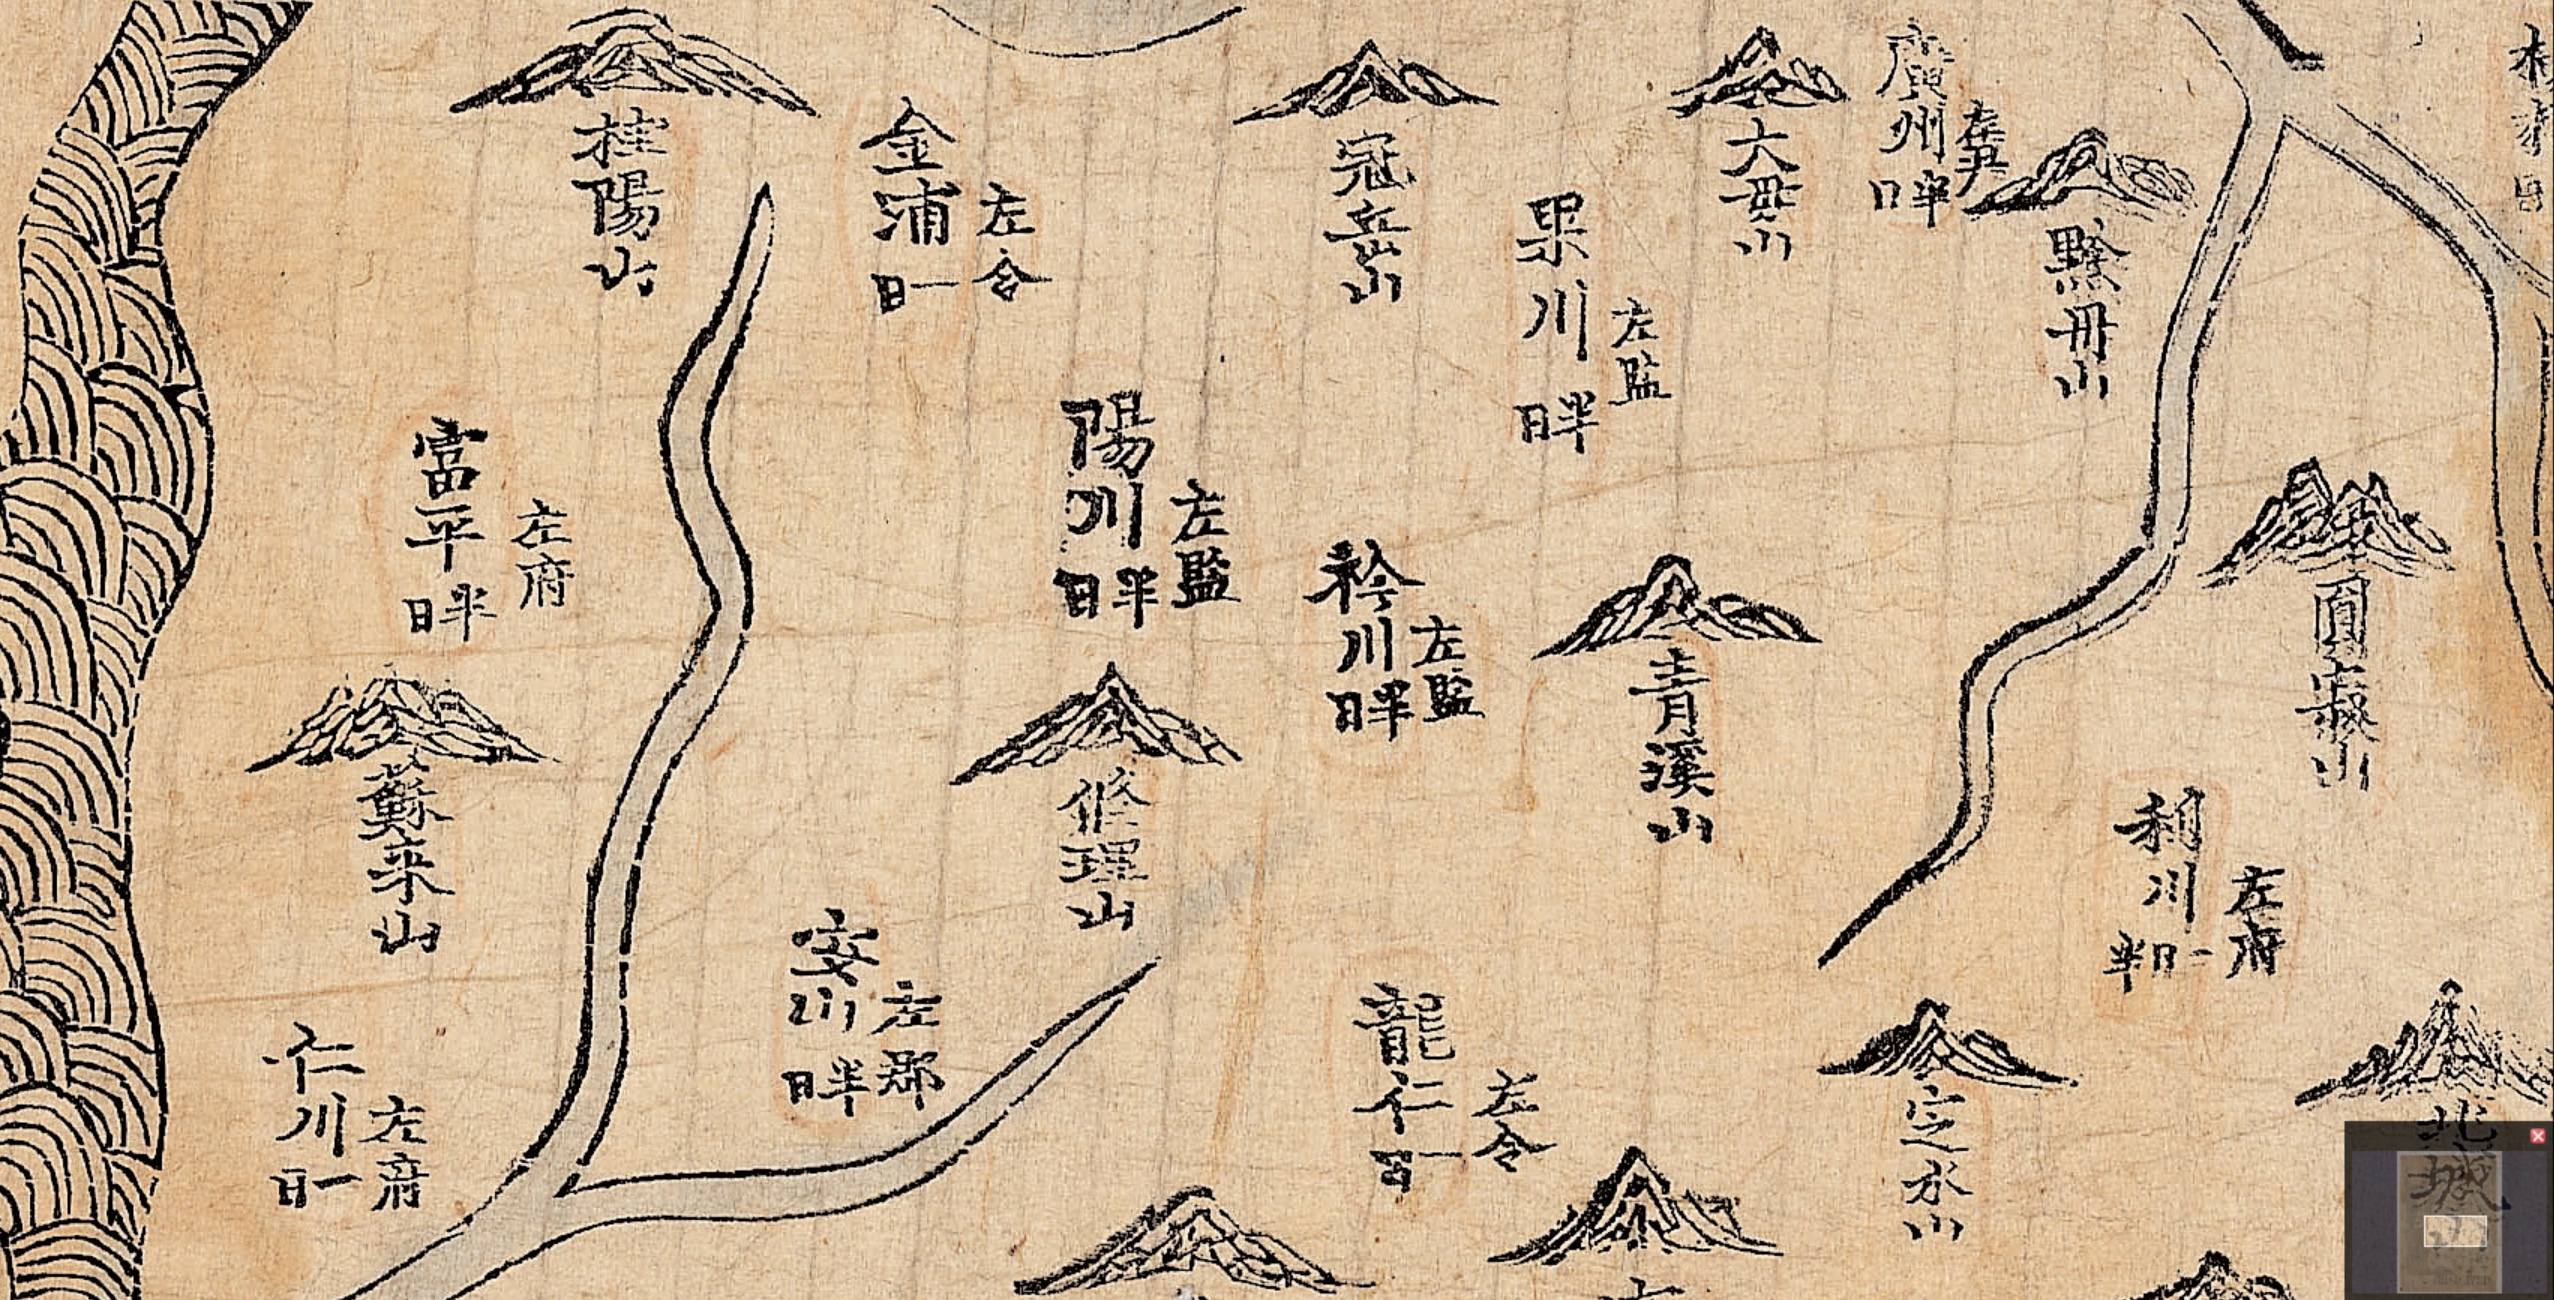 桂陽山
金浦
一日
左令
冠岳山
果川
半日
左監
大母山
廣州
半日
左尹
黔丹山
富平
半日
左府
陽川
半日
左監
衿川
半日
左監
青溪山
圓寂山
蘇來山
修理山
利川
一日半
左府
安川
半日
左郡
仁川
一日
左府
龍仁
一日
左令
定水山
北城山